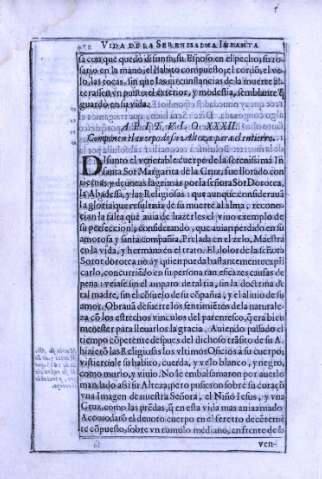 VIDA DE LA SERENISSIMA INFANTA
sa con que quedò difunta, su Esposo en el pecho, su ro-
sario en la mano, el habito compuesto, el cordō, el ve-
lo, las tocas, sin que las circunstancias de la muerte al-
terassen vn punto el exterior, y modestia, semblante q̄
guardò en su vida.
CAPITVLO XXXII.
Componen el cuerpo de su Alteza para el entierro.
DIfunto el venerable cuerpo de la serenissima In
fanta Sor Margarita de la Cruz, fue llorado con
tiernas, y deuotas lagrimas por la señora Sor Dorotea,
la Abadessa, y las Religiosas: que aunque considerauā
la gloria que resultaua de su muerte al alma, recono-
cian la falta que auia de hazerles el viuo exemplo de
su perfeccion; considerando, que auian perdido en su
amorosa y santa compañia, Prelada en el zelo, Maestra
en la vida, y hermana en el trato. El dolor de la señora
Sor Dorotea no ay quien pueda bastantemente expli-
carlo, concurriēdo en su persona tan eficazes causas de
pena: verse sin el amparo de tal tia, sin la doctrina de
tal madre, sin el cōsuelo de su cōpañia, y el aliuio de su
amor. Obrauā de suerte los sentimiētos de la naturale-
za cō los estrechos vinculos del parentesco, q̄ era bien
menester para lleuarlos la gracia. Auiendo passado el
tiempo cōpetente despues del dichoso trāsito de su A.
hizierō las Religiosas los vltimos Oficios à su cuerpo,
vistierōle su habito, cuerda, y velo blanco, y negro,
como murio, y viuio. No le embalsamaron por auerlo
mandado assi su Alteza, pero pusieron sobre su coraçō
vna Imagen de nuestra Señora, el Niño Iesus, y vna
Cruz, como las prēdas, q̄ en esta vida mas auia amado
Acomodarō el deuoto cuerpo en el feretro decēteme-
te cōpuesto, sobre vn tumulo mediano, en frente de la
ven-